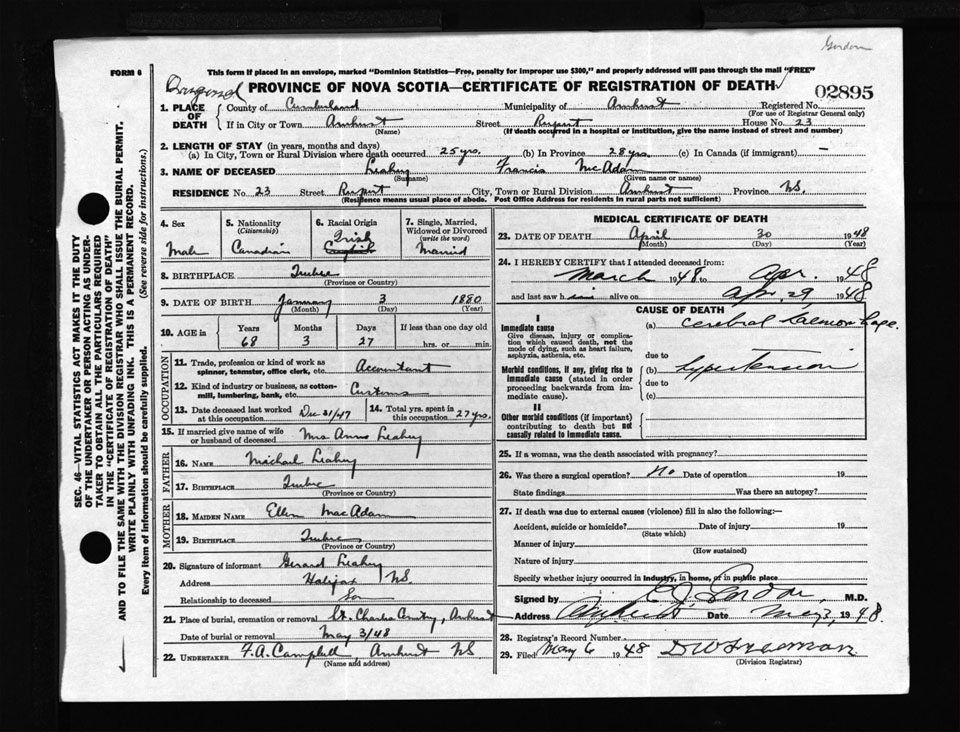 Gordon
FORM 6
This form if placed in an envelope, marked "Dominion Statistics—Free, penalty for improper use $300," and properly addressed will pass through the mail "FREE"
Original PROVINCE OF NOVA SCOTIA—CERTIFICATE OF REGISTRATION OF DEATH 02895
1. PLACE OF DEATH County of Cumberland Municipality of Amherst Registered No.
(For use of Registrar General only)
If in City or Town Amherst Street Rupert House No. 23
(Name) (If death occurred in a hospital or institution, give the name instead of street and number)
2. LENGTH OF STAY (in years, months and days)
(a) In City, Town or Rural Division where death occurred 25 yrs. (b) In Province 28 yrs. (c) In Canada (if immigrant) —
3. NAME OF DECEASED Leahey Francis McAdam
(Surname) (Given name or names)
RESIDENCE No. 23 Street Rupert City, Town or Rural Division Amherst Province NS.
(Residence means usual place of abode. Post Office Address for residents in rural parts not sufficient)
4. Sex 5. Nationality (Citizenship) 6. Racial Origin 7. Single, Married, Widowed or Divorced (write the word)
Male Canadian Irish English Married
8. BIRTHPLACE Quebec
(Province or Country)
9. DATE OF BIRTH January 3 1880
(Month) (Day) (Year)
10. AGE in Years Months Days If less than one day old
68 3 27 hrs. or min.
OCCUPATION
11. Trade, profession or kind of work as spinner, teamster, office clerk, etc. Accountant
12. Kind of industry or business, as cotton-mill, lumbering, bank, etc. Customs
13. Date deceased last worked at this occupation. Dec 31/47 14. Total yrs. spent in this occupation. 27 yrs.
15. If married give name of wife or husband of deceased Mrs Anna Leahey
FATHER
16. NAME Michael Leahey
17. BIRTHPLACE Quebec
(Province or Country)
MOTHER
18. MAIDEN NAME Ellen MacAdam
19. BIRTHPLACE Quebec
(Province or Country)
20. Signature of informant Gerard Leahey
Address Halifax NS.
Relationship to deceased Son
21. Place of burial, cremation or removal St. Charles Amherst
Date of burial or removal May 3/48
22. UNDERTAKER F.A. Campbell, Amherst NS
(Name and address)
MEDICAL CERTIFICATE OF DEATH
23. DATE OF DEATH April 30 1948
(Month) (Day) (Year)
24. I HEREBY CERTIFY that I attended deceased from:
March 1948 to Apr. 1948
and last saw him alive on Apr 29 1948
CAUSE OF DEATH
I
Immediate cause (a) cerebral hemorrhage.
Give disease, injury or complication which caused death, not the mode of dying, such as heart failure, asphyxia, asthenia, etc.
due to
Morbid conditions, if any, giving rise to immediate cause (stated in order proceeding backwards from immediate cause). (b) hypertension
due to
(c)
II
Other morbid conditions (if important) contributing to death but not causally related to immediate cause.
25. If a woman, was the death associated with pregnancy?
26. Was there a surgical operation? No Date of operation 19
State findings Was there an autopsy?
27. If death was due to external causes (violence) fill in also the following:—
Accident, suicide or homicide? Date of injury 19
(State which)
Manner of injury
(How sustained)
Nature of injury
Specify whether injury occurred in industry, in home, or in public place
Signed by Gordon M.D.
Address Amherst Date May 3, 1948
28. Registrar's Record Number
29. Filed May 6 1948
(Division Registrar)
SEC. 46—VITAL STATISTICS ACT MAKES IT THE DUTY
OF THE UNDERTAKER OR PERSON ACTING AS UNDER-
TAKER TO OBTAIN ALL THE PARTICULARS REQUIRED
IN THE "CERTIFICATE OF REGISTRATION OF DEATH"
AND TO FILE THE SAME WITH THE DIVISION REGISTRAR WHO SHALL ISSUE THE BURIAL PERMIT.
WRITE PLAINLY WITH UNFADING INK. THIS IS A PERMANENT RECORD.
Every item of information should be carefully supplied. (See reverse side for instructions.)